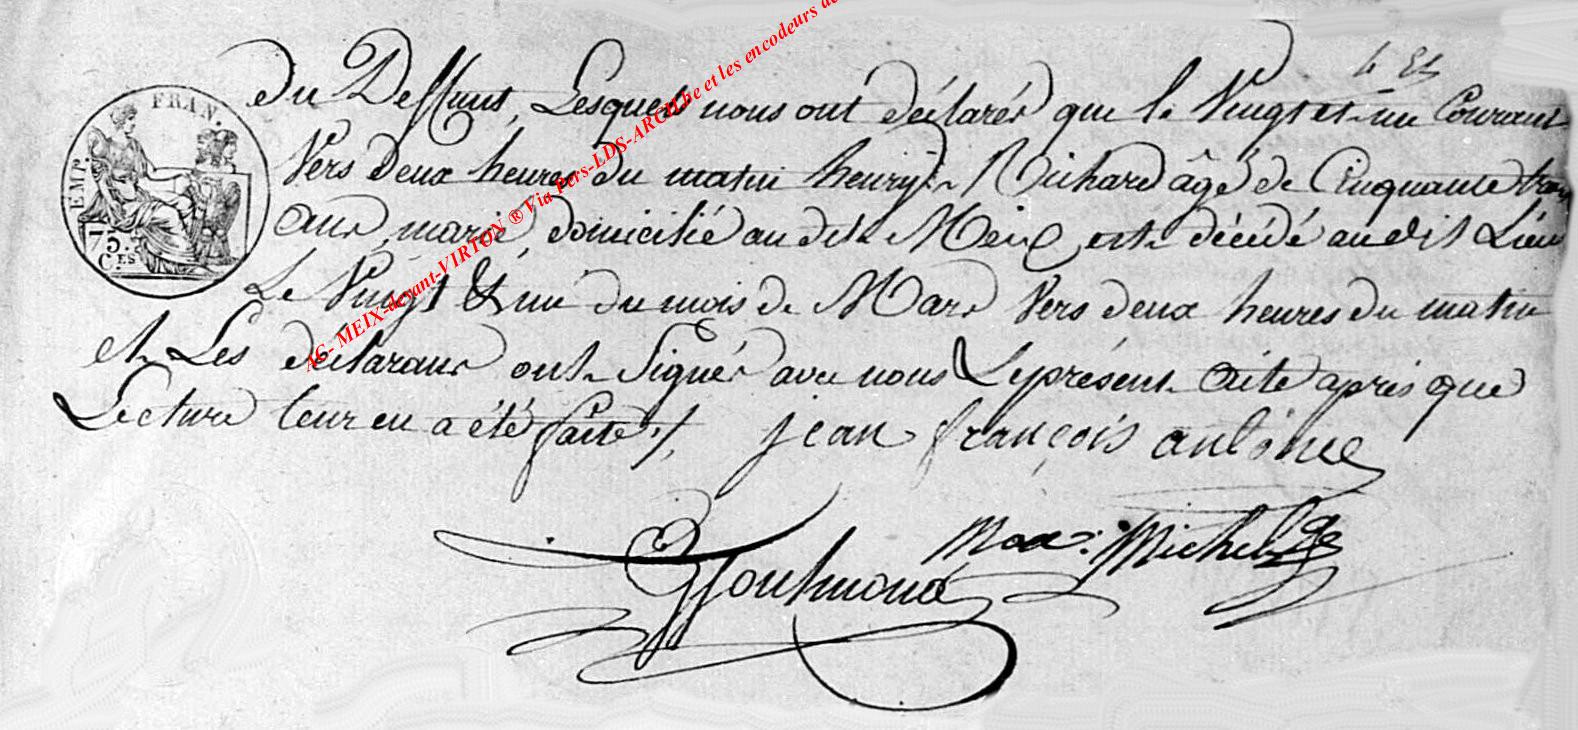 EMP. FRAN.
75. C.ES
AC- MEIX-devant-VIRTON ® Via Pers-LDS-ARCH.be et les encodeurs de
du Deffunt, Lesquels nous ont déclarés que le Vingt et un Courant
Vers deux heures du matin henry Richard âgé de Cinquante trois
ans, marié, domicilié au dit Meix est décédé au dit Lieu
Le Vingt & un du mois de Mars Vers deux heures du matin
et Les déclarans ont Signés avec nous Le présent acte après que
Lecture leur en a été faite ./.
jean françois antoine
Max: Michel
Goulmond